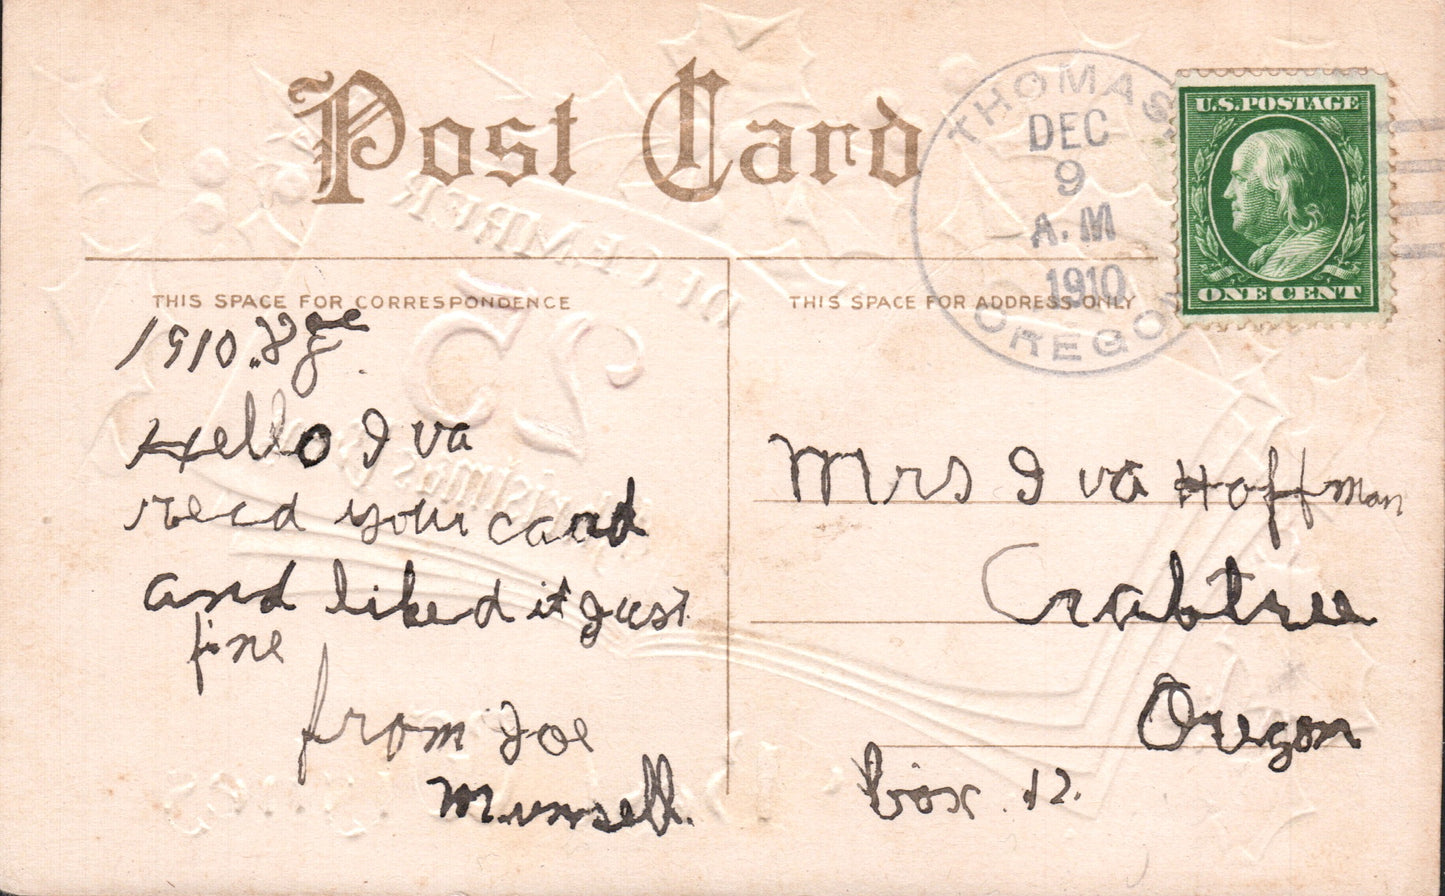 Post Card
THIS SPACE FOR CORRESPONDENCE
THIS SPACE FOR ADDRESS ONLY
THOMAS,
DEC
9
A.M
1910
OREGON
U.S. POSTAGE
ONE CENT
1910.
Hello Iva
recd your caard
and liked it Just
fine
from Joe
Munsell.
Mrs Iva Hoffman
Crabtree
Oregon
box. 12.
DECEMBER
25
Christmas